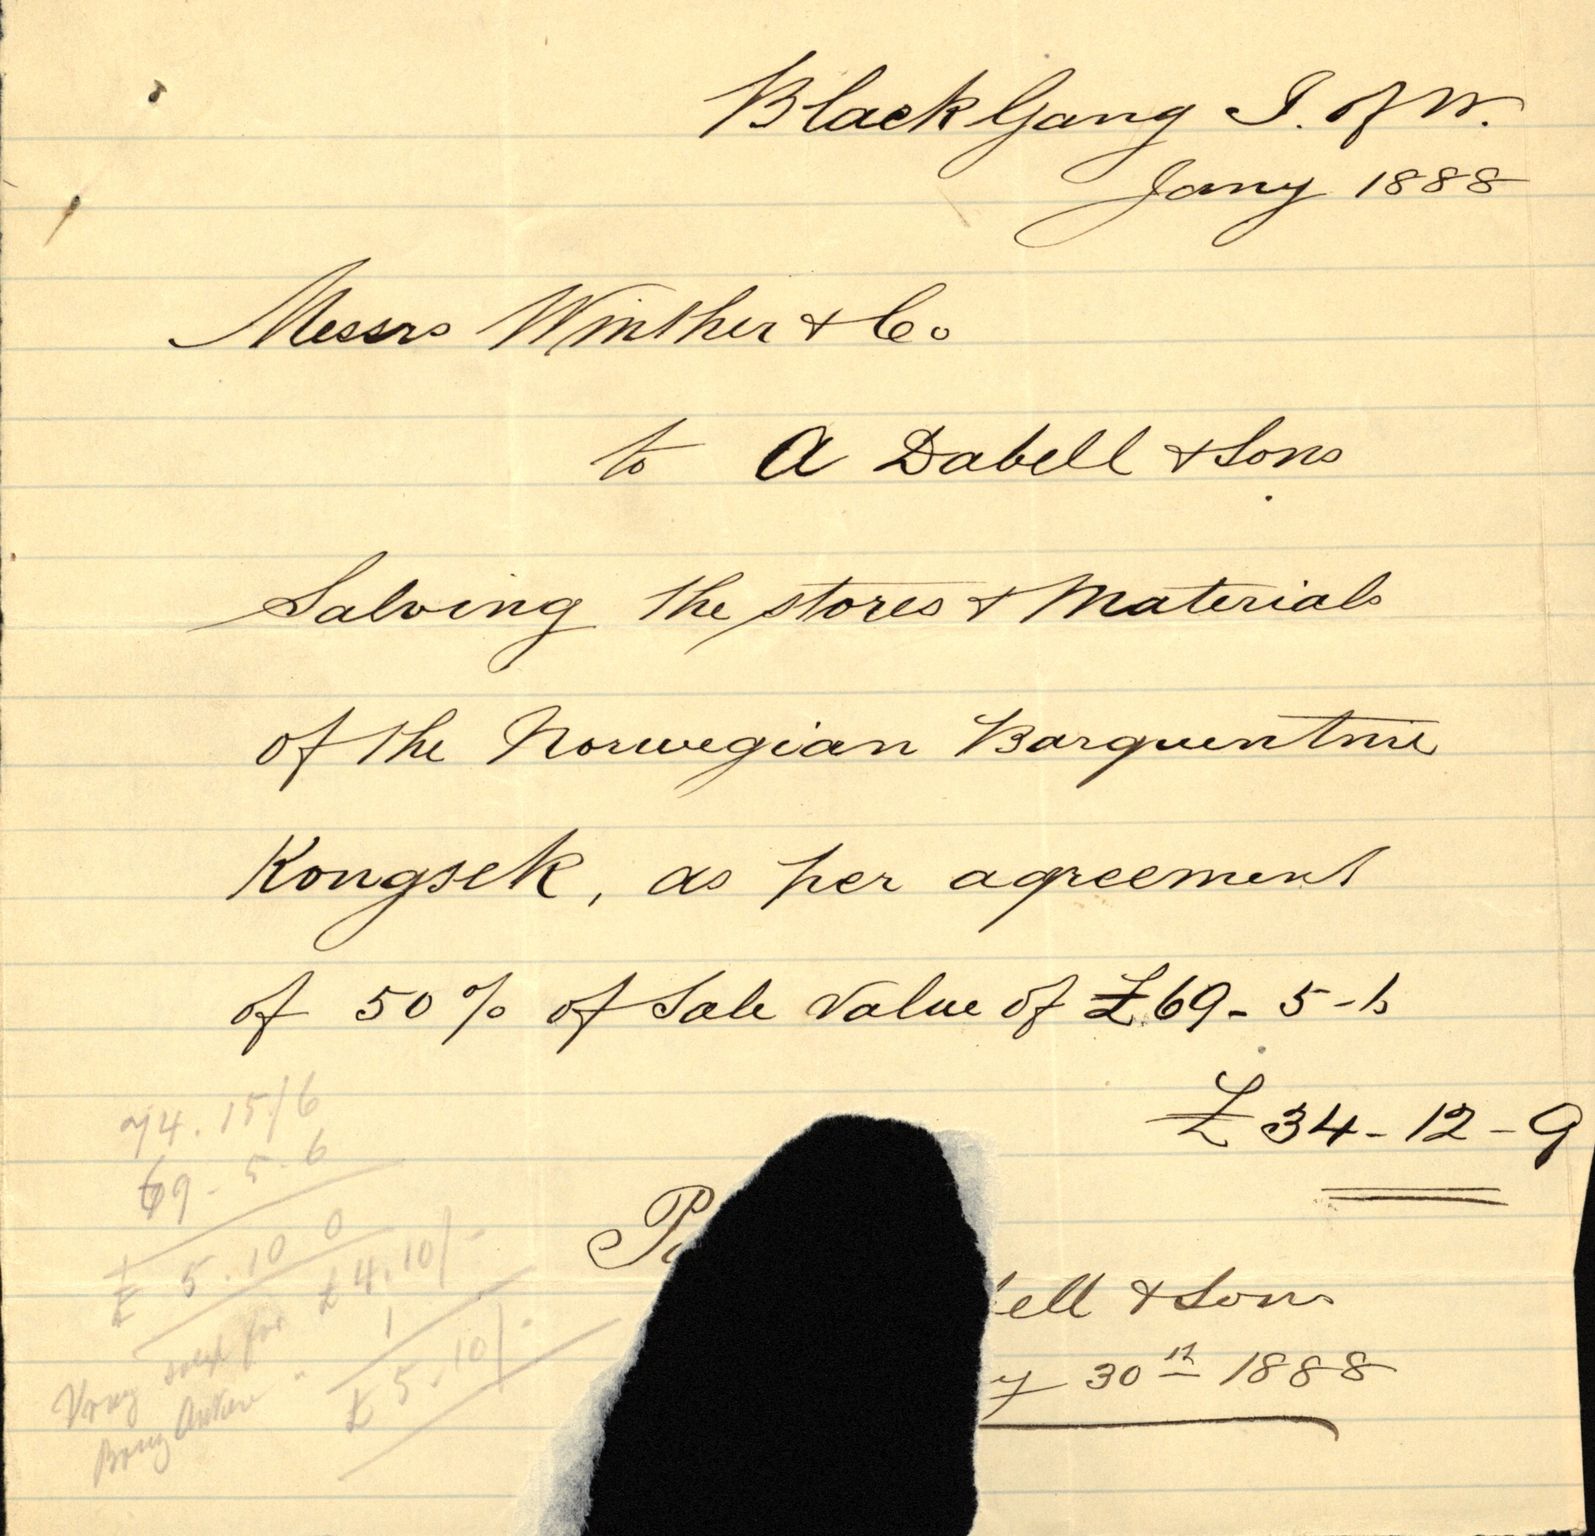 Black Gang I. of W.
Jany 1888
Messrs Winther & Co
to A Dabell & Sons
Salving the stores & Materials
of the Norwegian Barquentine
Kongsek, as per agreement
of 50% of Sale Value of £69-5-6
£34-12-9
ell & Sons
y 30th 1888
74.15/6
69-5.6
£ 5.10 0
sold for £4.10/-
1
£5.10/-